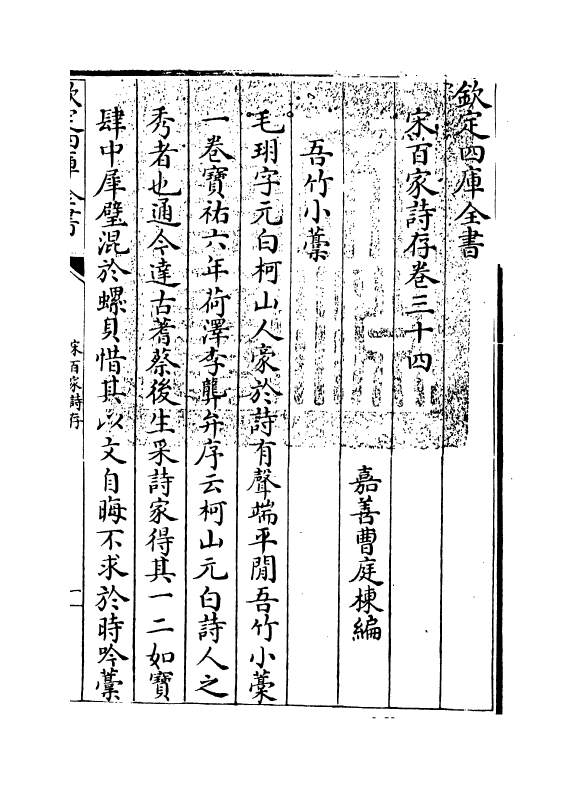 欽定四庫全書
宋百家詩存卷三十四
嘉善曹庭棟編
吾竹小藁
毛珝字元白柯山人豪於詩有聲端平間吾竹小藁
一卷寶祐六年荷澤李龏弁序云柯山元白詩人之
秀者也通今達古蓍蔡後生采詩家得其一二如寶
肆中犀璧混於螺貝惜其以文自晦不求於時吟藁
欽定四庫全書
宋百家詩存
一